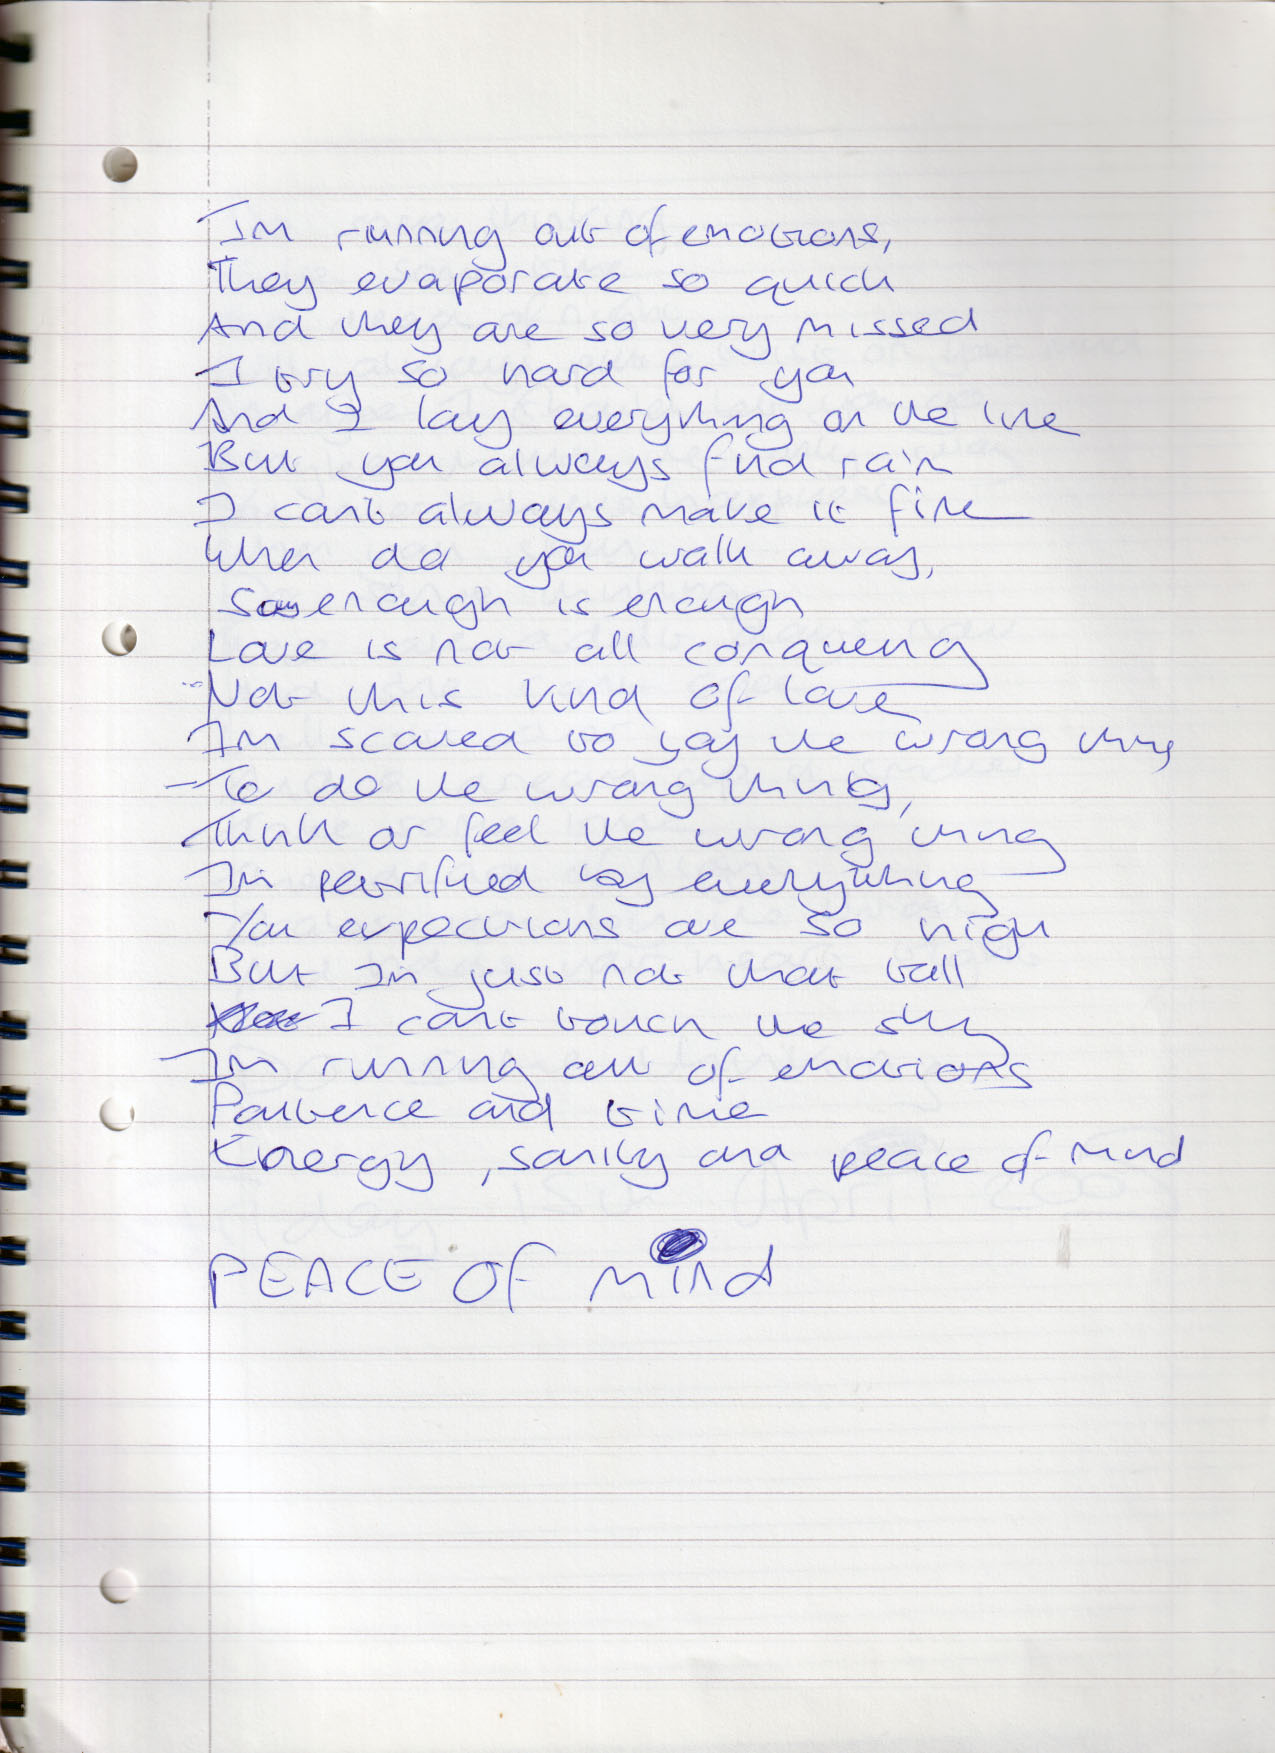 Im running out of emotions,
They evaporate so quick
And they are so very missed
I try so hard for you
And I lay everything on the line
But you always find rain
I cant always make it fine
When do you walk away,
Say enough is enough
Love is not all conquering
Not this kind of love
Im scared to say the wrong thing
To do the wrong thing,
Think or feel the wrong thing
Im petrified by everything
You expections are so high
But Im just not that tall
I cant touch the sky
Im running out of emotions
Patience and time
Energy, sanity and peace of mind
PEACE OF mind